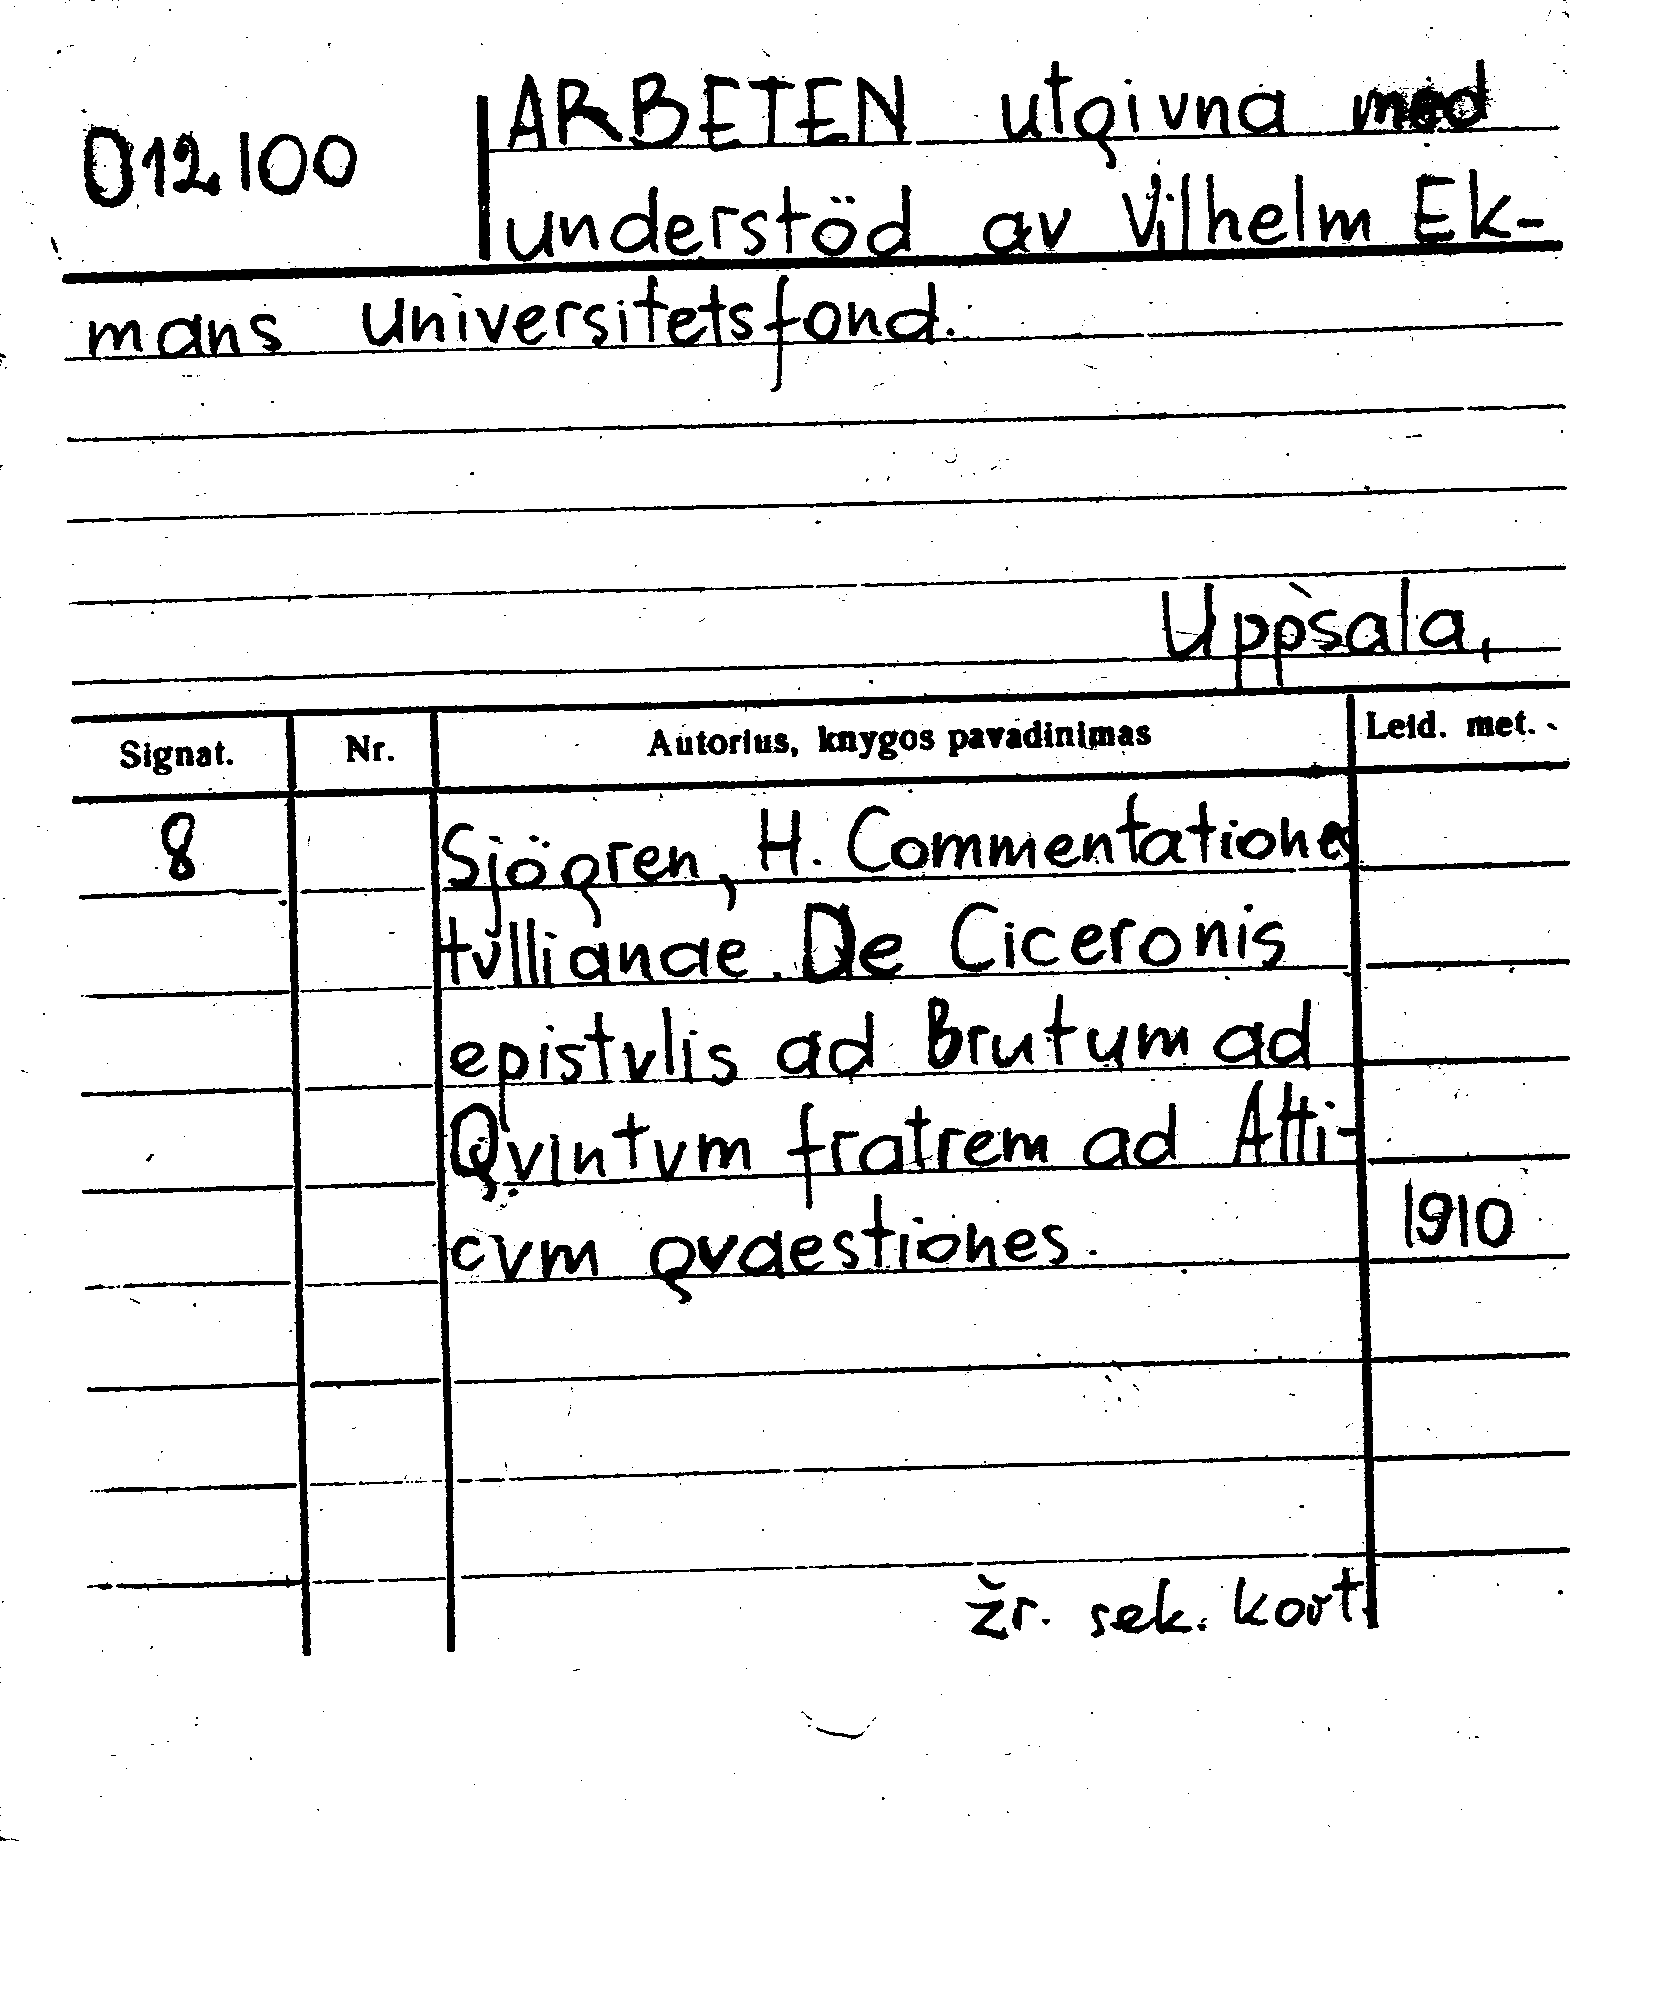 D12100 ARBETEN utgivna med
understöd av Vilhelm Ek-
mans universitetsfond.
Uppsala,
Signat. Nr. Autorius, knygos pavadinimas Leid. met.
8 Sjögren, H. Commentationes
tvllianae. De Ciceronis
epistvlis ad Brutum ad
Qvintvm fratrem ad Atti-
cvm qvaestiones. 1910
žr. sek. kort.